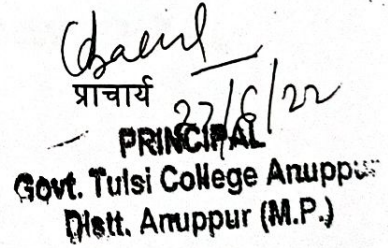 प्राचार्य
27/6/22
PRINCIPAL
Govt. Tulsi College Anuppur
Distt. Anuppur (M.P.)